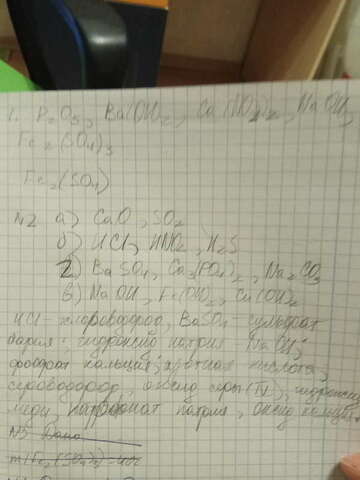 1. P₂O₅, Ba(OH)₂, Ca(NO₃)₂, NaOH,
Fe₂(SO₄)₃
Fe₂(SO₄)
N2 а) CaO, SO₂
б) HCl, HNO₂, H₂S
г) BaSO₄, Ca₃(PO₄)₂, Na₂CO₃
в) NaOH, Fe(OH)₂, Cu(OH)₂
HCl - хлороводород, BaSO₄ - сульфат
бария; гидроксид натрия NaOH;
фосфат кальция; кислота,
сероводород, оксид серы (IV), гидроксид
меди, натрия, оксид кальция
N3 Дано